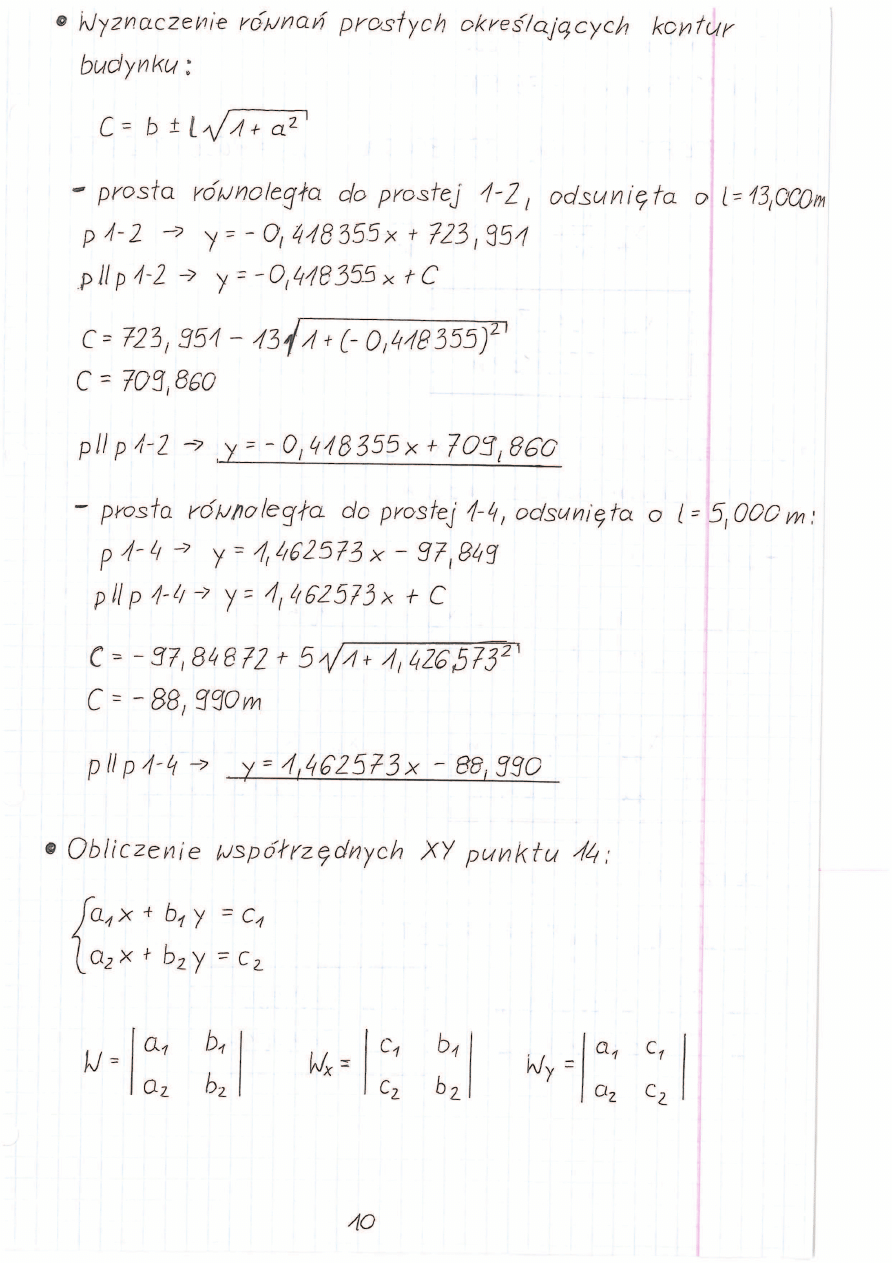 • Wyznaczenie równań prostych określających kontur
budynku:
C = b ± l√(1 + a²)
- prosta równoległa do prostej 1-2, odsunięta o l = 13,000m
p 1-2 → y = - 0,418355x + 723,951
p || p 1-2 → y = -0,418355x + C
C = 723,951 - 13√(1 + (-0,418355)²)
C = 709,860
p || p 1-2 → y = - 0,418355x + 709,860
- prosta równoległa do prostej 1-4, odsunięta o l = 5,000 m:
p 1-4 → y = 1,462573x - 97,849
p || p 1-4 → y = 1,462573x + C
C = -97,84872 + 5√(1 + 1,426573²)
C = -88,990m
p || p 1-4 → y = 1,462573x - 88,990
• Obliczenie współrzędnych XY punktu 14:
{a₁x + b₁y = c₁
{a₂x + b₂y = c₂
W = |a₁ b₁| Wₓ = |c₁ b₁| Wy = |a₁ c₁|
|a₂ b₂| |c₂ b₂| |a₂ c₂|
10